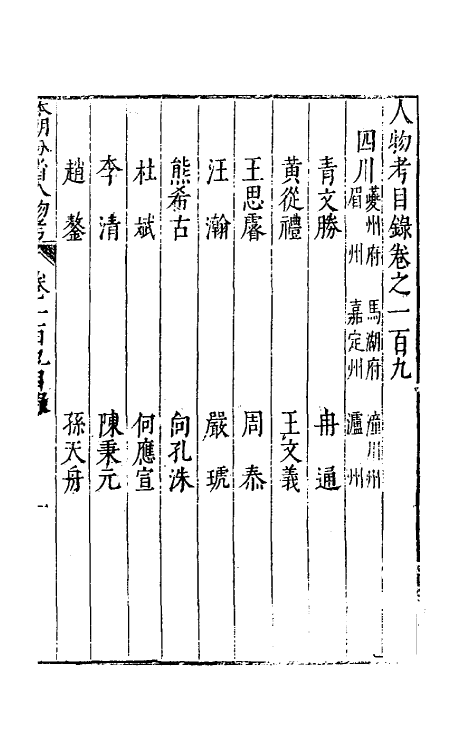 人物考目錄卷之一百九
四川夔州府 馬湖府 潼川州
眉州 嘉定州 瀘州
青文勝 冉通
黃從禮 王文義
王思㢞 周泰
汪瀚 嚴琥
熊希古 向孔洙
杜斌 何應宣
李清 陳秉元
趙鏊 孫天舟
本朝分省人物考 卷之一百九目錄 一